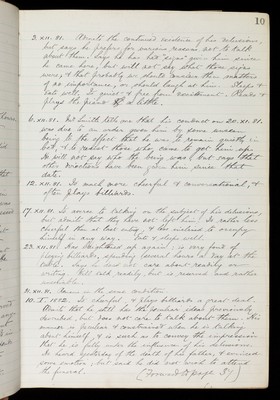 10
3.XII.91. Admits the continued existence of his delusions,
but says he prefers for various reasons not to talk
about them. Says he has had signs given him since
he came here, but will not say what those signs
were, & that probably we should consider them matters
of no importance, or should laugh at him. Sleeps &
eats well. Is quiet & free from excitement. Reads &
plays the piano a little.
6.XII.91. Mr Smith tells me that his conduct on 20.XI.91.
was due to an order given him by some unseen
being to the effect that he was to remain quietly in
bed, & to resist those who came to get him up.
He will not say who the being was, but says that
other directions have been given him since that
date.
12.XII.91. Is much more cheerful & conversational, &
often plays billiards.
17.XII.91. Is averse to talking on the subject of his delusions
but admits that they have not left him. Is rather less
cheerful than at last entry, & less inclined to occupy
himself in any way. Eats & sleeps well.
23.XII.91. Has brightened up again, is very fond of
playing billiards, spending several hours a day at the
table. Does not care about reading or
writing. Will talk readily, but is reserved and rather
31.XII.91. Remains in the same condition.
10.I.1892. Is cheerful, & plays billiards a great deal.
Admits that he still has the ideas previously
described, but does not care to talk about them. His
manner is peculiar & constrained when he is talking
about himself, & is such as to convey the impression
that he is fully under the influence of his delusions.
He heard yesterday of the death of his father, & evinced
some emotion, but said he did not want to attend
the funeral.
(Forward to page 51)